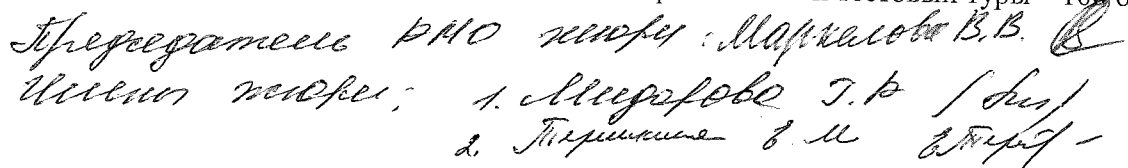 Председатель РМО жюри: Маркелова В.В.
Члены жюри: 1. Мидарова Г.Р
2. Терюшина Е М